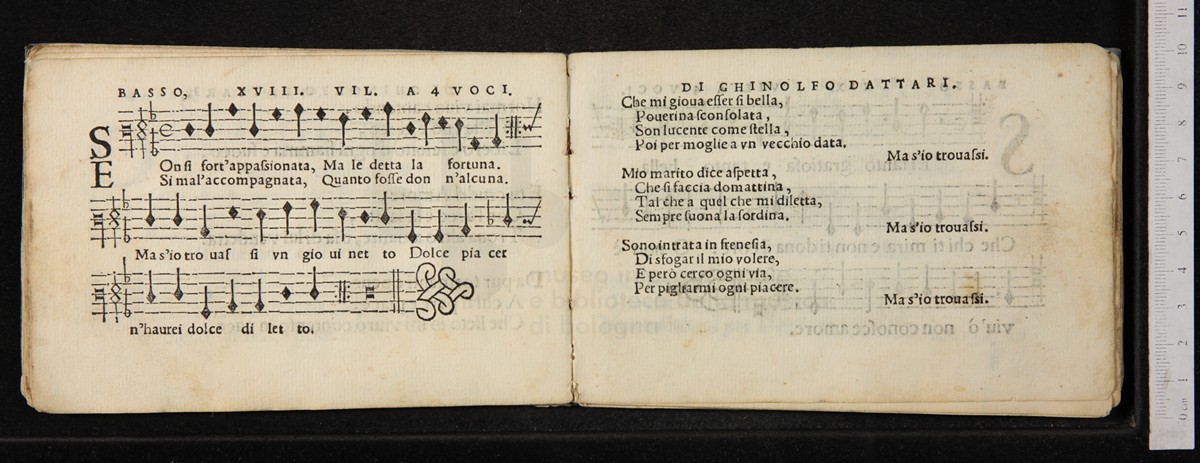 BASSO, XVIII. VIL. A 4 VOCI.
SE
On si fort'appaſsionata, Ma le detta la fortuna.
Si mal'accompagnata, Quanto foſſe don n'alcuna.
Ma s'io tro uaſ ſi vn gio ui net to Dolce pia cer
n'haurei dolce di let to.
DI GHINOLFO DATTARI.
Che mi gioua eſſer ſi bella,
Pouerina ſconſolata,
Son lucente come ſtella,
Poi per moglie a vn vecchio data.
Ma s'io trouaſsi.
Mio marito dice aſpetta,
Che ſi faccia domattina,
Tal che a quel che mi diletta,
Sempre ſuona la ſordina.
Ma s'io trouaſsi.
Sono intrata in freneſia,
Di sfogar il mio volere,
E però cerco ogni via,
Per pigliarmi ogni piacere.
Ma s'io trouaſsi.
museo in
e biblioteca della musica
di bologna
0 cm 1 2 3 4 5 6 7 8 9 10 11